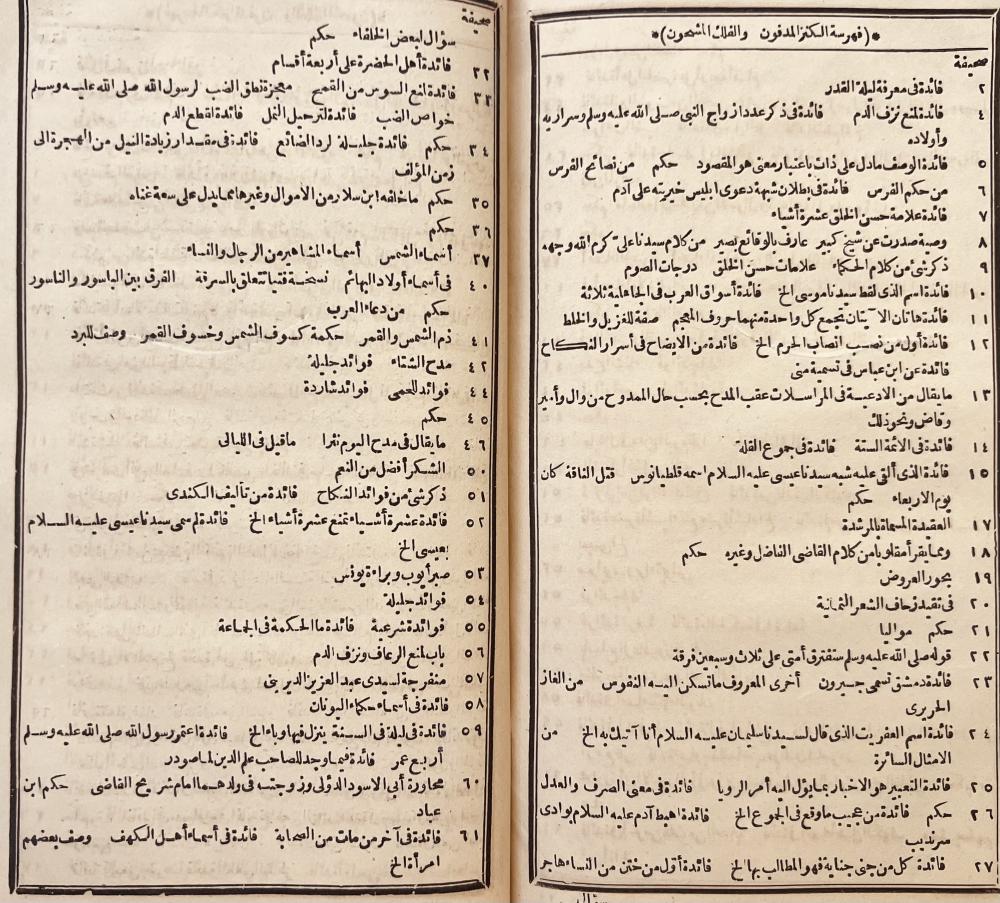 *(فهرسة الكنز المدفون والفلك المشحون)*
صحيفة
٢ فائدة فى معرفة ليلة القدر
٤ فائدة لمنع نزف الدم فائدة فى ذكر عدد ازواج النبى صلى الله عليه وسلم وسراريه
وأولاده
٥ فائدة الوصف ما دل على ذات باعتبار معنى هو المقصود حكم من نصائح الفرس
٦ من حكم الفرس فائدة فى بطلان شبهة دعوى ابليس خيريته على آدم
٧ فائدة علامة حسن الخلق عشرة أشياء
٨ وصية صدرت عن شيخ كبير عارف بالوقائع بصير من كلام سيدنا على كرم الله وجهه
٩ ذكر شئ من كلام الحكماء علامات حسن الخلق درجات الصوم
١٠ فائدة اسم الذى لقط سيدنا موسى الخ فائدة أسواق العرب فى الجاهلية ثلاثة
١١ فائدة هاتان الآيتان تجمع كل واحدة منهما حروف المعجم صفة للغزيل والخلط
١٢ فائدة أول من نصب انصاب الحرم الخ فائدة من الايضاح فى أسرار النكاح
فائدة عن ابن عباس فى تسمية متى
١٣ ما يقال من الادعية فى المراسلات عقب المدح بحسب حال الممدوح من وال وأمير
وقاض ونحو ذلك
١٤ فائدة فى الائمة الستة فائدة فى جموع القلة
١٥ فائدة الذى ألقى عليه شبه سيدنا عيسى عليه السلام اسمه قلطيانوس قتل الناقة كان
يوم الاربعاء حكم
١٧ العقيدة المسماة بالمرشدة
١٨ ومما يقرأ مقلوبا من كلام القاضى الفاضل وغيره حكم
١٩ بحور العروض
٢٠ فى تقييد زحاف الشعر الثمانية
٢١ حكم مواليا
٢٢ قوله صلى الله عليه وسلم ستفترق أمتى على ثلاث وسبعين فرقة
٢٣ فائدة دمشق تسمى جيرون أخرى المعروف ما تسكن اليه النفوس من الغاز
الحريرى
٢٤ فائدة اسم العفريت الذى قال لسيدنا سليمان عليه السلام أنا آتيك به الخ من
الامثال السائرة
٢٥ فائدة التعبير هو الاخبار بما يؤل اليه أمر الرويا فائدة فى معنى الصرف والعدل
٢٦ حكم فائدة من عجيب ما وقع فى الجموع الخ فائدة اهبط آدم عليه السلام بوادى
سرنديب
٢٧ فائدة كل من جنى جناية فهو المطالب بها الخ فائدة أول من ختن من النساء هاجر
صحيفة
سؤال لبعض الخلفاء حكم
٣٢ فائدة أهل الحضرة على أربعة أقسام
٣٣ فائدة لمنع السوس من القمح معجزة نطق الضب لرسول الله صلى الله عليه وسلم
خواص الضب فائدة لترحيل النمل فائدة لقطع الدم
٣٤ حكم فائدة جليلة لرد الضائع فائدة فى مقدار زيادة النيل من الهجرة الى
زمن المؤلف
٣٥ حكم ما خلفه ابن سلار من الاموال وغيرها مما يدل على سعة غناه
٣٦ حكم
٣٧ أسماء الشمس أسماء المشاهير من الرجال والنساء
٤٠ فى أسماء أولاد البهائم نسخة فتيا تتعلق بالسرقة الفرق بين الباسور والناسور
حكم من دعاء العرب
٤١ ذم الشمس والقمر حكمة كسوف الشمس وخسوف القمر وصف للبرد
٤٢ مدح الشتاء فوائد جليلة
٤٤ فوائد للحمى فوائد شاردة
٤٥ حكم
٤٦ ما يقال فى مدح اليوم نثرا ما قيل فى الليالى
٥٠ الشكر أفضل من النعم
٥١ ذكر شئ من فوائد النكاح فائدة من تأليف الكندى
٥٢ فائدة عشرة أشياء تمنع عشرة أشياء الخ فائدة لم سمى سيدنا عيسى عليه السلام
بعيسى الخ
٥٣ صبر أيوب وبراءة يونس
٥٤ فوائد جليلة
٥٥ فوائد شرعية فائدة ما الحكمة فى الجماعة
٥٦ باب لمنع الرعاف ونزف الدم
٥٧ منفرجة لسيدى عبد العزيز الديرينى
٥٨ فائدة فى أسماء حكماء اليونان
٥٩ فائدة فى ليلة فى السنة ينزل فيها وباء الخ فائدة اعتمر رسول الله صلى الله عليه وسلم
أربع عمر فائدة فيما وجد للصاحب علم الدين لما صودر
٦٠ محاورة أبى الاسود الدؤلى وزوجته فى ولدهما امام شريح القاضى حكم ابن
عباد
٦١ فائدة فى آخر من مات من الصحابة فائدة فى أسماء أهل الكهف وصف بعضهم
امرأة الخ